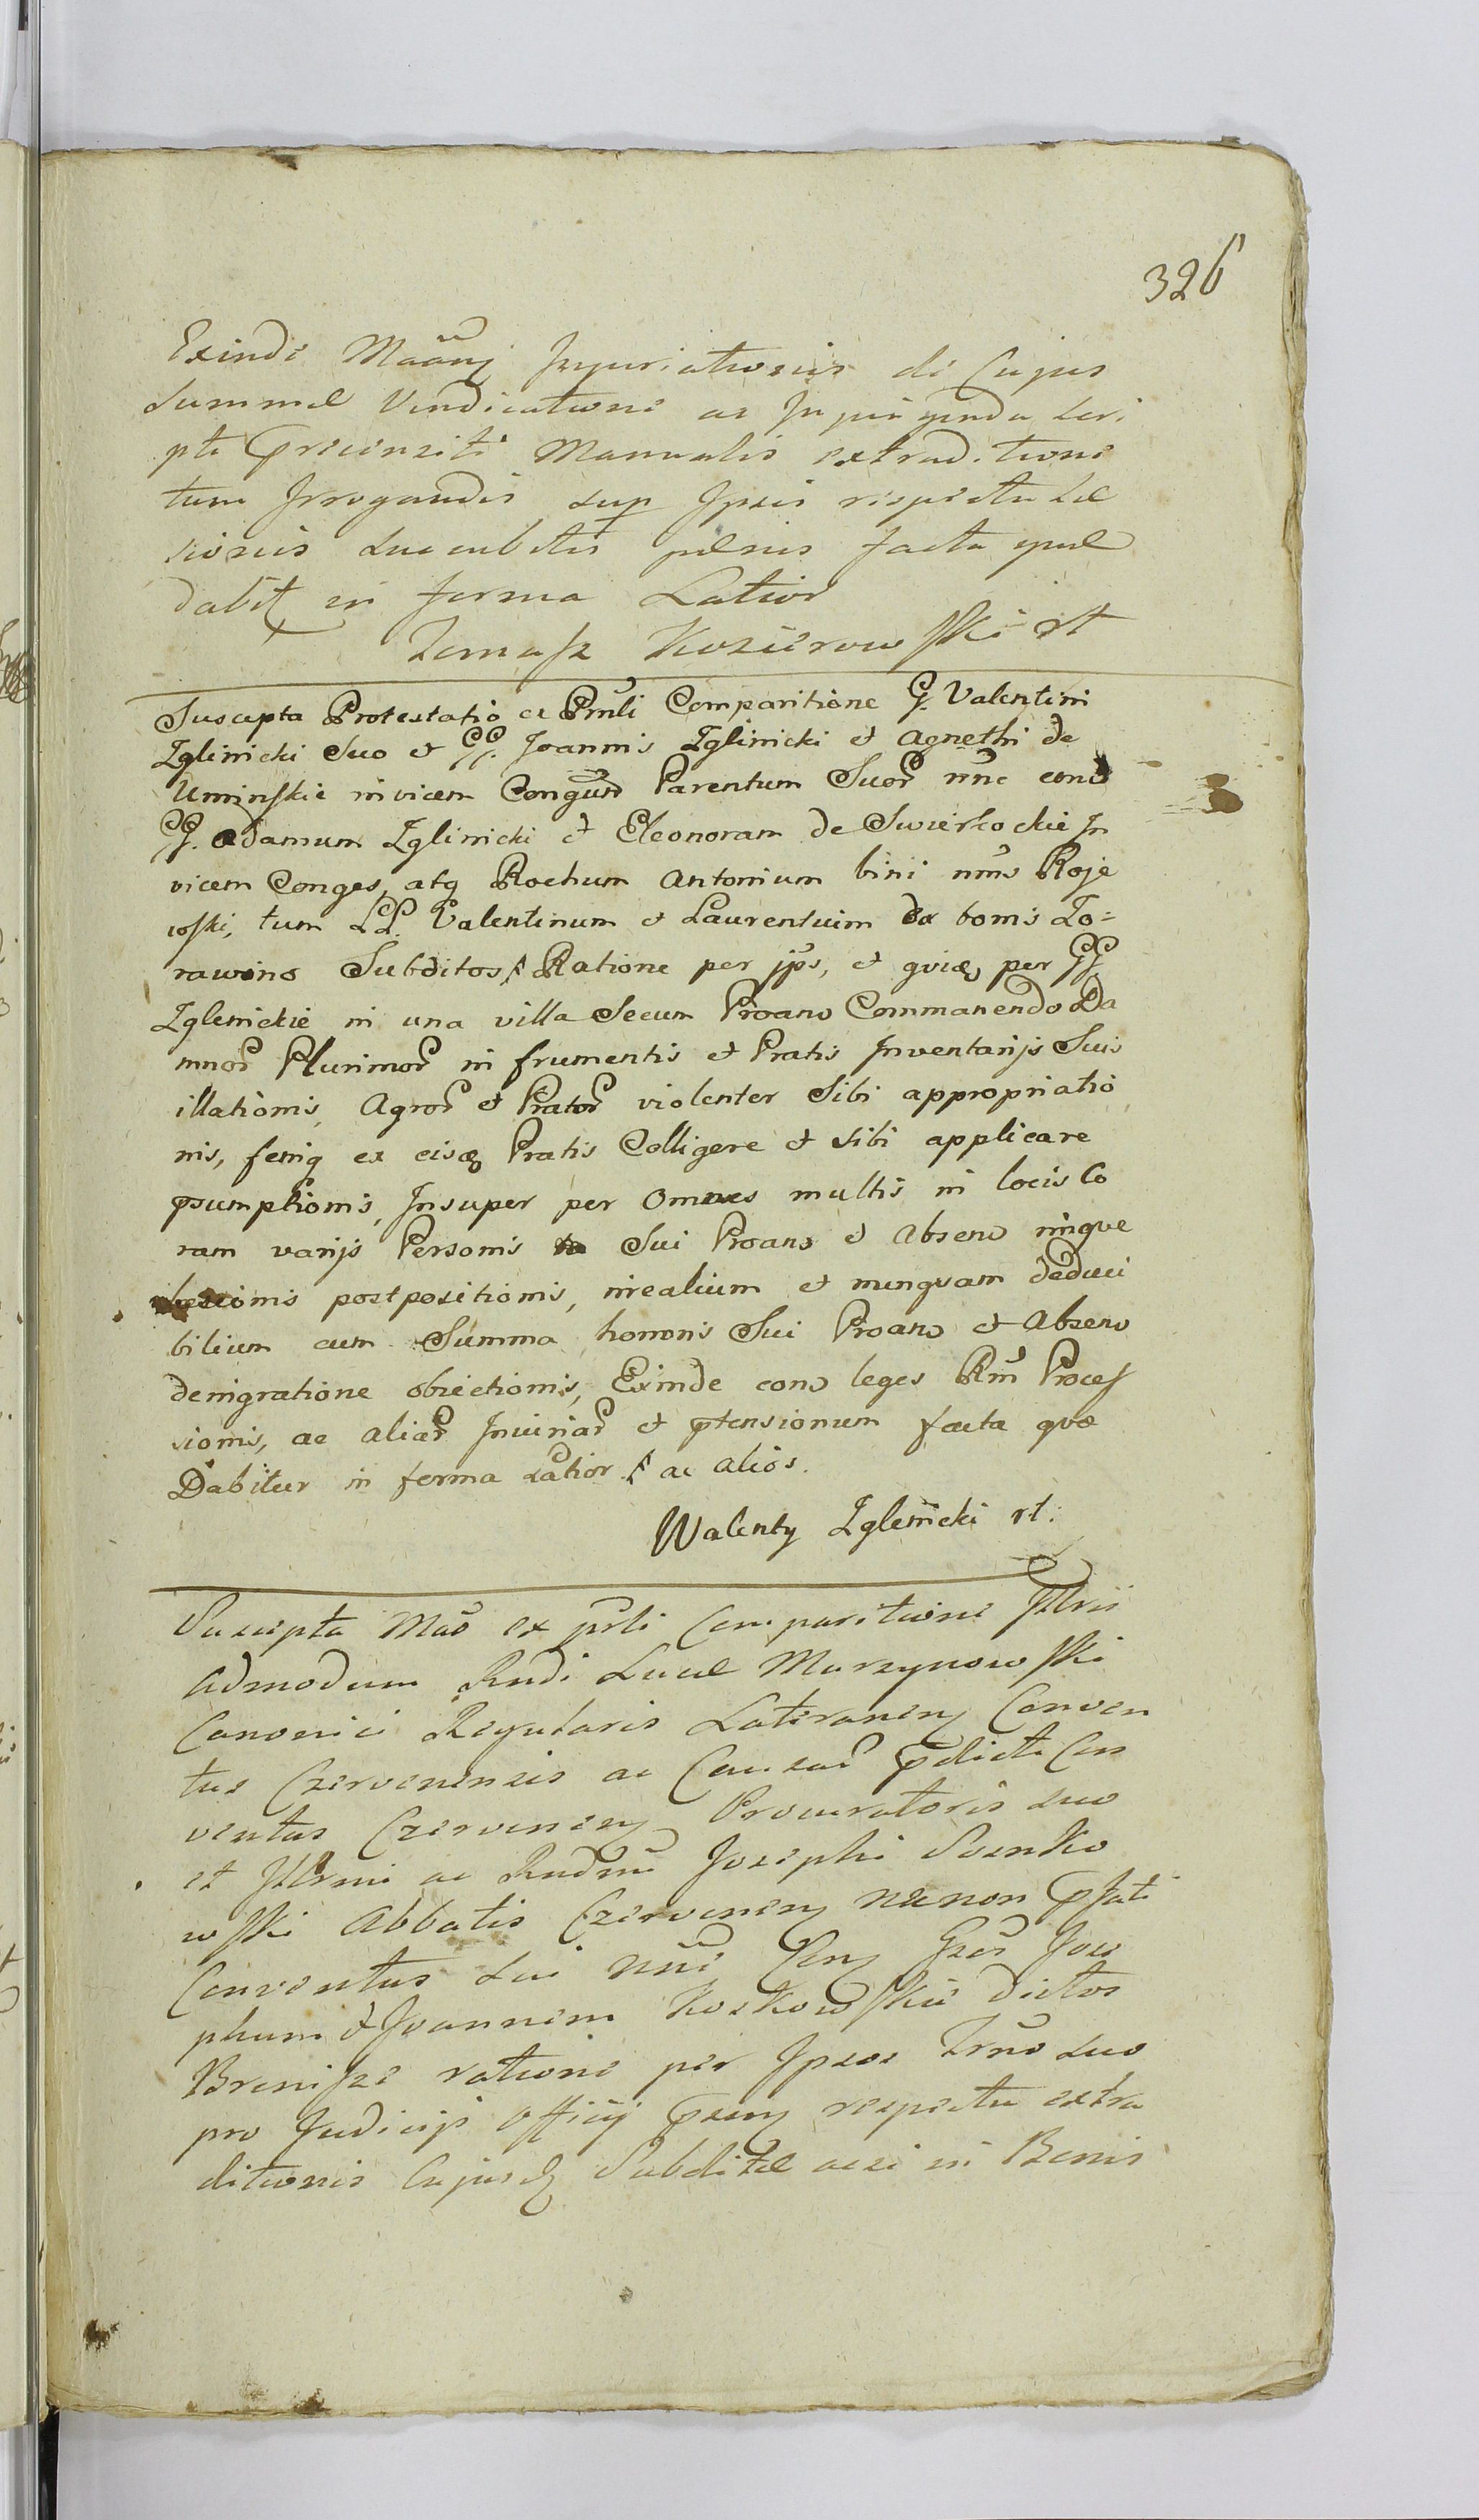 326
Exinde Maanj Injuriationis de Cujus
Summae Vindicatione ac Inpingenda Scri
pta Preconsiti Manualis extraditione
tum Irrogandis sup Ipsis respectu Lae
sionis succubitis paenis facta quae
dabit in forma Latior
Tomasz Kozierowski rt
Suscepta Protestatio ex Prnli Comparitione G. Valentini
Zglinicki Suo et GG. Joannis Zglinicki et Agnethi de
Uminskie invicem Congum Parentum Suor nnc conō
GG. Adamum Zglinicki et Eleonoram de Swierkockie In
vicem Conges, atq Rochum Antonium bini nms Roje
wski, tum LL. Valentinum et Laurentium ex bonis Zo=
rawino Subditos Ratione per jps, et gviaȩ per GG
Zglenickie in una villa Secum Proano Commanendo Da
mnor Plurimor in frumentis et Pratis Inventarijs Suis
illationis, Agror et Prator violenter Sibi appropriatio
nis, feniq ex eisq Pratis Colligere et sibi applicare
psumptionis, Insuper per Omnes multis in locis Co
ram varijs Personis Sui Proano et Abseno nnqve
postpositionis, irealium et nunqvam deduci
bilium cum Summa honoris Sui Proano et Abseno
denigratione obiectionis, Exinde cono leges Rni Proces
sionis, ac aliar Iniuriar et ptensionum facta qvæ
Dabitur in forma Latior ac alios.
Walenty Zglenicki rt.
Suscepta Mao ex prli Comparitione Illris
Admodum Rndi Lucae Murzynowski
Canonici Regularis Lateranen Conven
tus Czervenensis ac Causar pdicti Con
ventus Czervenen Procuratoris suo
et Illrmi ac Rndmi Josephi Sosnko
wski Abbatis Czervenen necnon psati
Conventus sui nni Con Gros Jose
phum et Joannem Koskowskie dictos
Brenisze ratione per Ipsos Trno suo
pro Judicijs Officij psen respectu extra
ditionis Cujusd Subditae acsi in Bonis